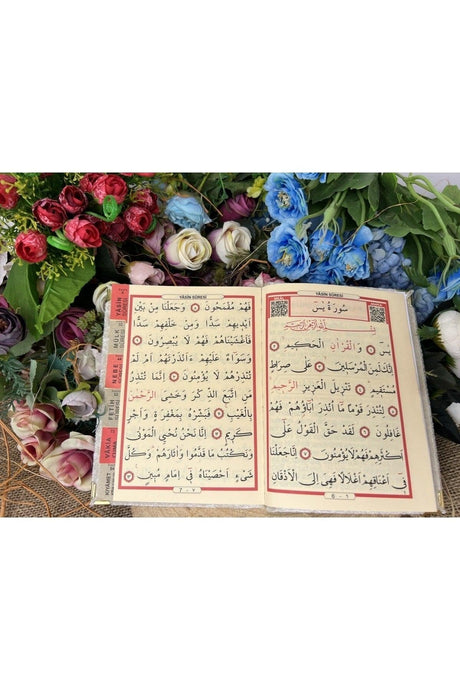 YÂSİN SÛRESİ
سُورَةُ يٰسٓ
بِسْمِ اللّٰهِ الرَّحْمٰنِ الرَّحِيمِ
يٰسٓ وَالْقُرْاٰنِ الْحَكِيمِ
اِنَّكَ لَمِنَ الْمُرْسَلِينَ عَلٰى صِرَاطٍ
مُسْتَقِيمٍ تَنْزِيلَ الْعَزِيزِ الرَّحِيمِ
لِتُنْذِرَ قَوْمًا مَا اُنْذِرَ اٰبَاؤُهُمْ فَهُمْ
غَافِلُونَ لَقَدْ حَقَّ الْقَوْلُ عَلٰى
اَكْثَرِهِمْ فَهُمْ لَا يُؤْمِنُونَ اِنَّا جَعَلْنَا
فِى اَعْنَاقِهِمْ اَغْلَالًا فَهِىَ اِلَى الْاَذْقَانِ
6 - ٦
YÂSİN SÛRESİ
فَهُمْ مُقْمَحُونَ وَجَعَلْنَا مِنْ بَيْنِ
اَيْدِيهِمْ سَدًّا وَمِنْ خَلْفِهِمْ سَدًّا
فَاَغْشَيْنَاهُمْ فَهُمْ لَا يُبْصِرُونَ
وَسَوَاءٌ عَلَيْهِمْ ءَاَنْذَرْتَهُمْ اَمْ لَمْ
تُنْذِرْهُمْ لَا يُؤْمِنُونَ اِنَّمَا تُنْذِرُ
مَنِ اتَّبَعَ الذِّكْرَ وَخَشِىَ الرَّحْمٰنَ
بِالْغَيْبِ فَبَشِّرْهُ بِمَغْفِرَةٍ وَاَجْرٍ
كَرِيمٍ اِنَّا نَحْنُ نُحْيِى الْمَوْتٰى
وَنَكْتُبُ مَا قَدَّمُوا وَاٰثَارَهُمْ وَكُلَّ
شَىْءٍ اَحْصَيْنَاهُ فِى اِمَامٍ مُبِينٍ
7 - ٧
YÂSİN
MÜLK
NEBE
FETİH
VÂKIA
KIYÂMET